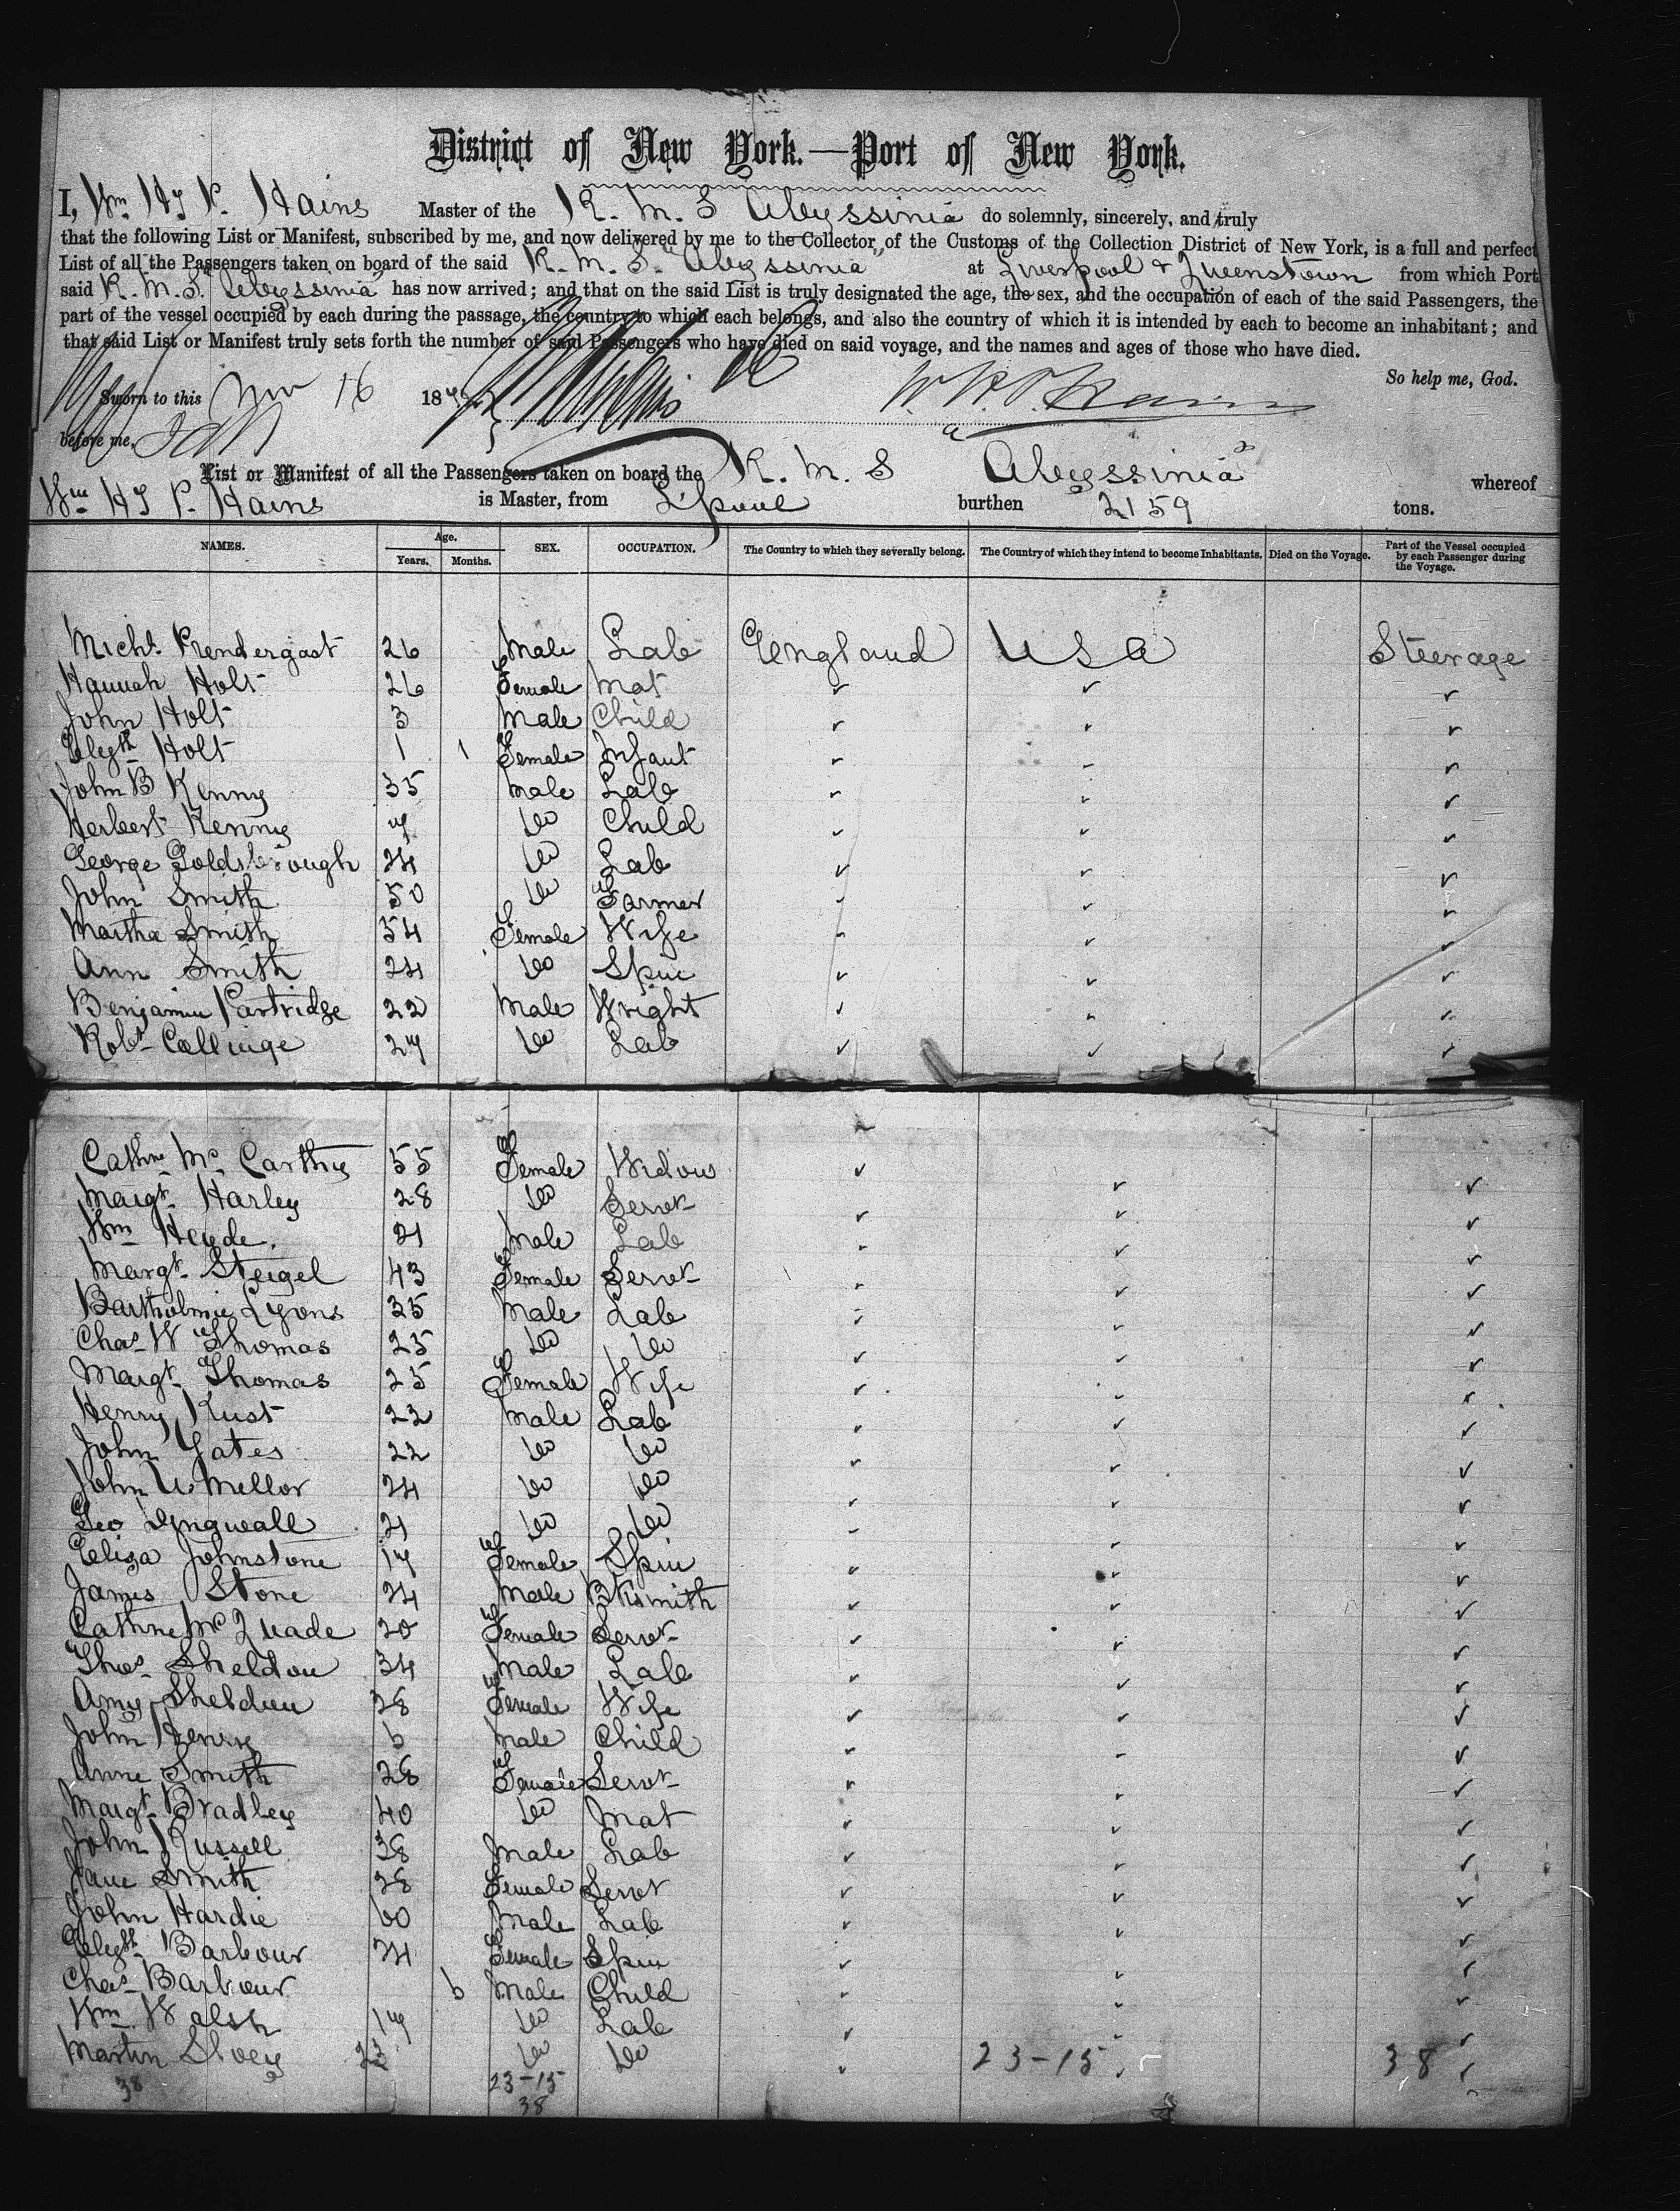 District of New York.—Port of New York.
I, Wm Hy P. Hains Master of the R. M. S Abyssinia do solemnly, sincerely, and truly
that the following List or Manifest, subscribed by me, and now delivered by me to the Collector of the Customs of the Collection District of New York, is a full and perfect
List of all the Passengers taken on board of the said R. M. S. "Abyssinia" at Liverpool & Queenstown from which Port
said R. M. S. Abyssinia has now arrived; and that on the said List is truly designated the age, the sex, and the occupation of each of the said Passengers, the
part of the vessel occupied by each during the passage, the country to which each belongs, and also the country of which it is intended by each to become an inhabitant; and
that said List or Manifest truly sets forth the number of said Passengers who have died on said voyage, and the names and ages of those who have died.
So help me, God.
Sworn to this Nov 16 187 W. H. P. Hains
before me,
List or Manifest of all the Passengers taken on board the R. M. S "Abyssinia" whereof
Wm Hy P. Hains is Master, from L'pool burthen 2159 tons.
NAMES. Age. Years. Months. SEX. OCCUPATION. The Country to which they severally belong. The Country of which they intend to become Inhabitants. Died on the Voyage. Part of the Vessel occupied by each Passenger during the Voyage.
Michl. Prendergast 26 Male Lab England USA Steerage
Hannah Holt 26 Female Mat ✓ ✓ ✓
John Holt 3 Male Child ✓ ✓ ✓
Elizth Holt 1 1 Female Infant ✓ ✓ ✓
John B Kenny 35 Male Lab ✓ ✓ ✓
Herbert Kenny 7 Do Child ✓ ✓ ✓
George Goldsbrough 24 Do Lab ✓ ✓ ✓
John Smith 50 Do Farmer ✓ ✓ ✓
Martha Smith 54 Female Wife ✓ ✓ ✓
Ann Smith 24 Do Spin ✓ ✓ ✓
Benjamin Partridge 22 Male Wright ✓ ✓ ✓
Robt Collinge 27 Do Lab ✓ ✓ ✓
Cathne Mc Carthy 55 Female Widow ✓ ✓ ✓
Margt. Harley 28 Do Servt ✓ ✓ ✓
Wm Heyde. 21 Male Lab ✓ ✓ ✓
Margt. Steigel 43 Female Servt ✓ ✓ ✓
Bartholmie Lyons 35 Male Lab ✓ ✓ ✓
Chas W Thomas 25 Do Do ✓ ✓ ✓
Margt. Thomas 25 Female Wife ✓ ✓ ✓
Henry Rust 22 Male Lab ✓ ✓ ✓
John Yates 22 Do Do ✓ ✓ ✓
John W Mellor 24 Do Do ✓ ✓ ✓
Geo Dingwall 21 Do Do ✓ ✓ ✓
Eliza Johnstone 17 Female Spin ✓ ✓ ✓
James Stone 24 Male Bksmith ✓ ✓ ✓
Cathne McQuade 20 Female Servt ✓ ✓ ✓
Thos Sheldon 34 Male Lab ✓ ✓ ✓
Amy Sheldon 28 Female Wife ✓ ✓ ✓
John Henry 6 Male Child ✓ ✓ ✓
Anne Smith 28 Female Servt ✓ ✓ ✓
Margt Bradley 40 Do Mat ✓ ✓ ✓
John Russell 38 Male Lab ✓ ✓ ✓
Jane Smith 28 Female Servt ✓ ✓ ✓
John Hardie 60 Male Lab ✓ ✓ ✓
Elizth Barbour 24 Female Spin ✓ ✓ ✓
Chas Barbour 6 Male Child ✓ ✓ ✓
Wm. Walsh 17 Do Lab ✓ ✓ ✓
Martin 23 Do Do ✓ 23-15 38 ✓
38 23-15
38